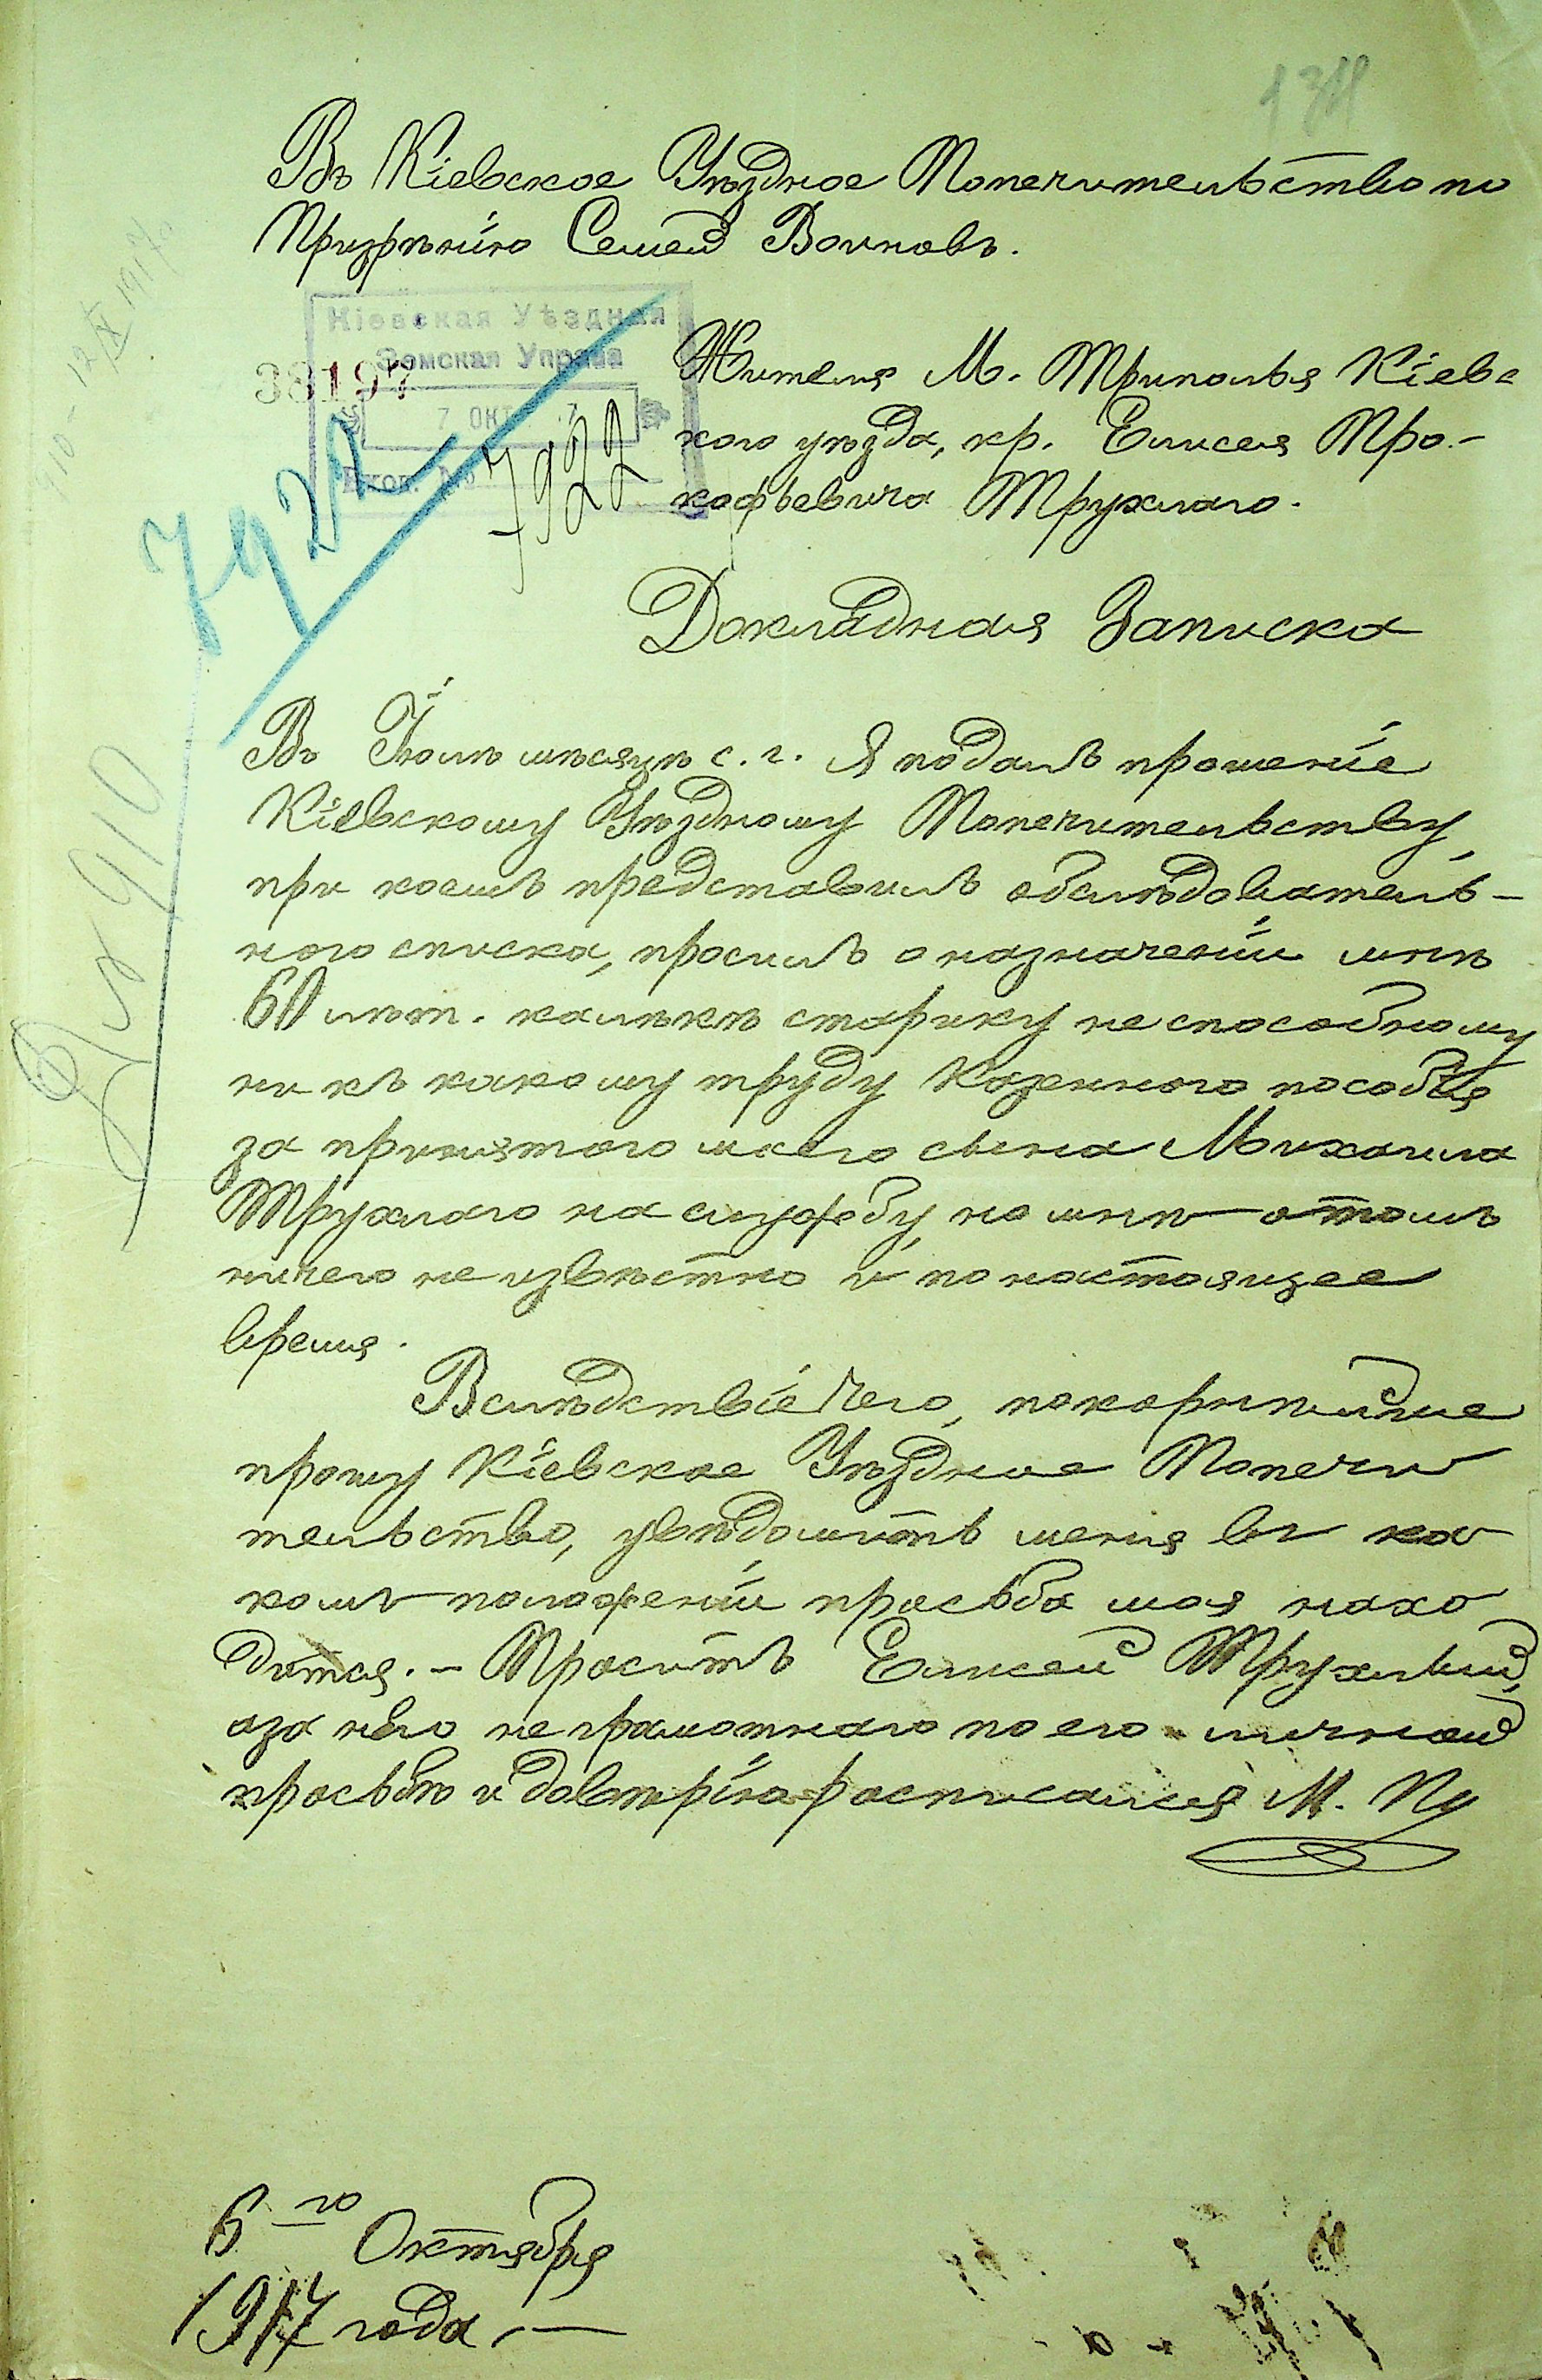 Въ Кіевское Уѣздное Попечительство по
Призрѣнію Семей Воиновъ.
Кіевская Уѣздная
Земская Управа
38197
7 ОКТ
Вход. №
7922
792
Жителя М. Триполья Кіевс
кого уѣзда, кр. Елисея Про-
кофьевича Трухлаго.
Докладная Записка
Въ Іюлѣ мѣсяцѣ с. г. Я подалъ прошеніе
Кіевскому Уѣздному Попечительству,
при коемъ представилъ обслѣдователь-
ного списка, просилъ о назначеніи мнѣ
60 лѣт. калѣкѣ старику не способному
ни къ какому труду Казенного пособія
за принятого моего сына Михаила
Трухлаго на службу, но мнѣ о томъ
ничего не извѣстно и по настоящее
время.
Вслѣдствіе чего, покорнѣйше
прошу Кіевское Уѣздное Попечи
тельство, увѣдомить меня въ ка
комъ положеніи просьба моя нахо
дится. - Проситъ Елисей Трухлый,
а за него не грамотнаго по его личной
просьбѣ и довѣрію росписался М. Пу
6 го Октября
1917 года. —